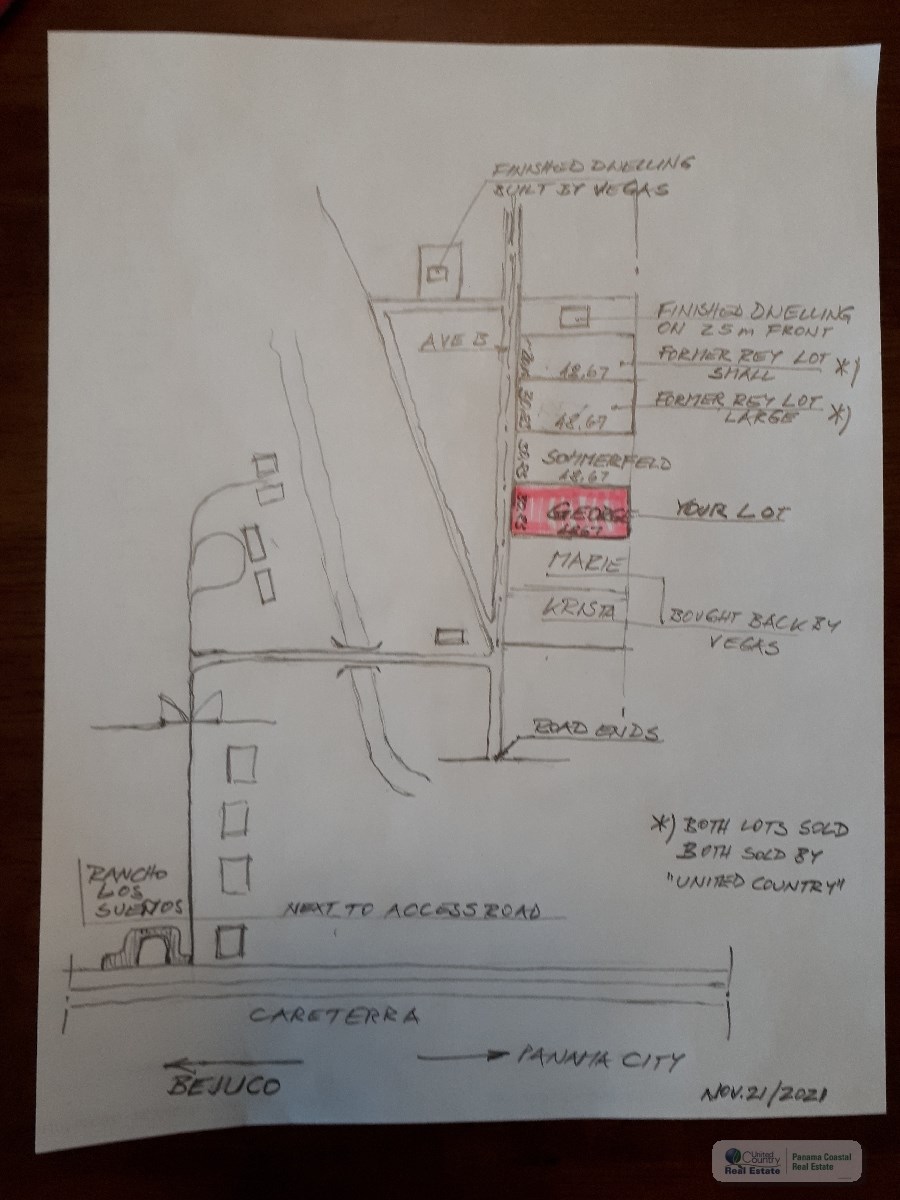 FINISHED DWELLING
BUILT BY VEGAS
FINISHED DWELLING
ON 25m FRONT
AVE B
FORMER REY LOT
SMALL *)
48,67
FORMER REY LOT
LARGE *)
48,67
SOMMERFELD
48,67
GEORGE
YOUR LOT
MARIE
KRISTA
BOUGHT BACK BY
VEGAS
ROAD ENDS
*) BOTH LOTS SOLD
BOTH SOLD BY
"UNITED COUNTRY"
RANCHO
LOS
SUEÑOS
NEXT TO ACCESS ROAD
CARETERRA
PANAMA CITY
BEJUCO
NOV. 21/2021
United
Country
Real Estate
Panama Coastal
Real Estate